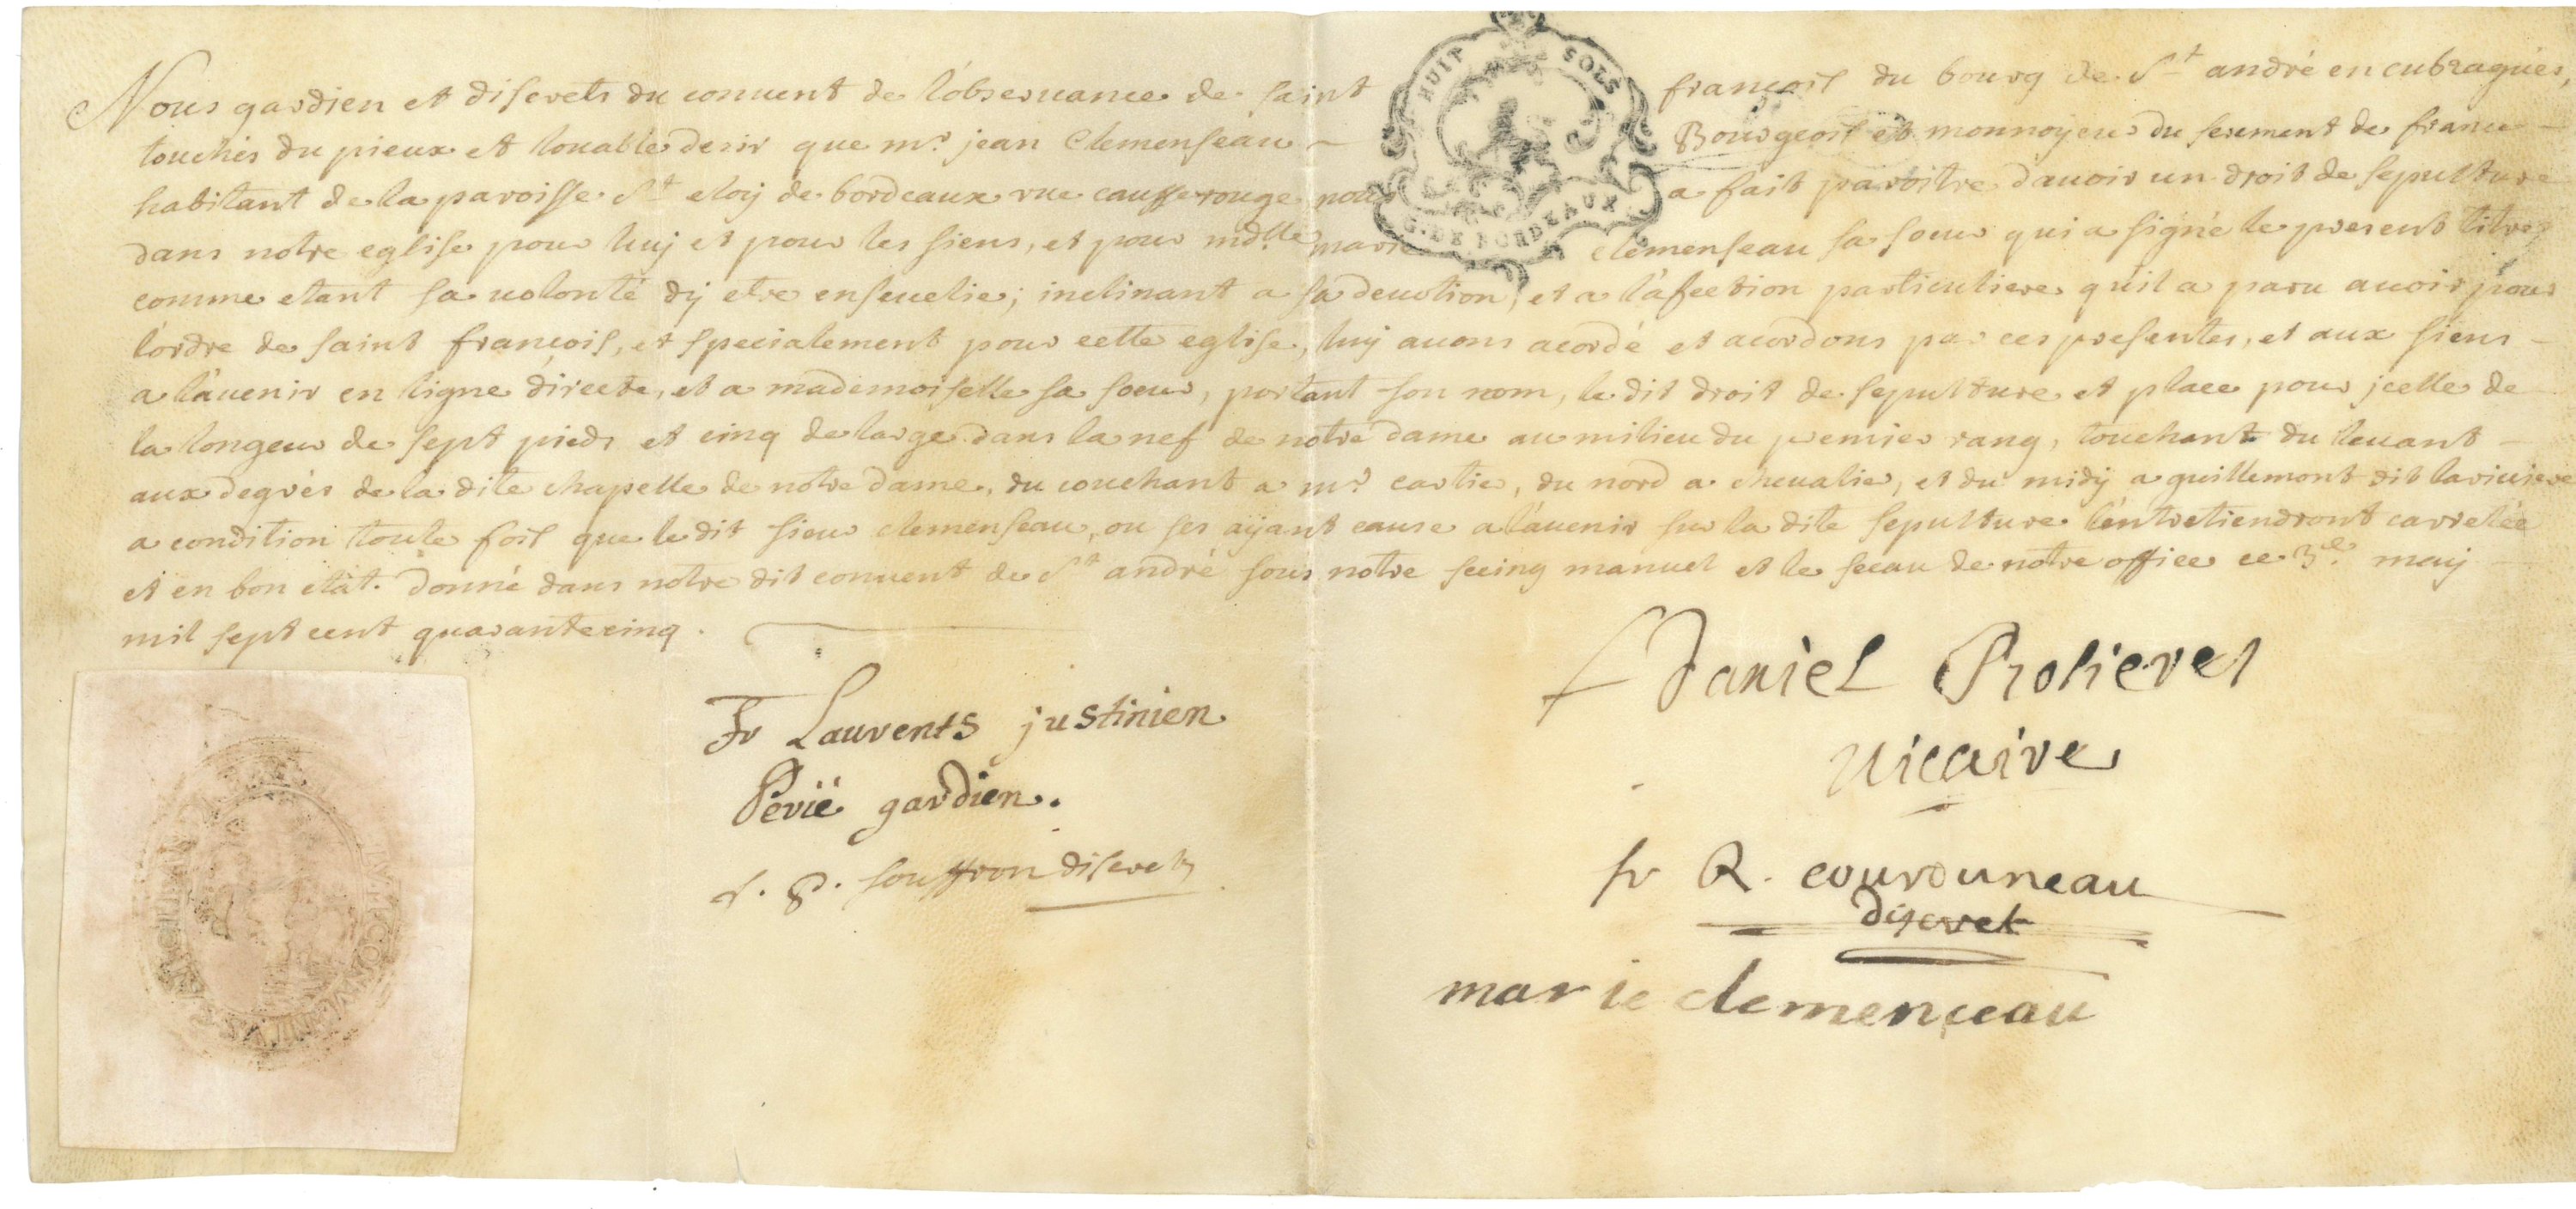 HUIT SOLS
G. DE BORDEAUX
Nous gardien et discrets du conuent de l'obseruance de saint françois du bourg de St andré en cubzaguès,
touchés du pieux et louable desir que mr. jean Clemenseau Bourgeois et monnoyeur du serment de france
habitant de la paroisse St eloy de bordeaux rue causserouge nous a fait paroitre d'auoir un droit de sepulture
dans notre eglise pour luy et pour les siens, et pour mdlle marie clemenseau sa soeur qui a signé le present titre,
comme etant sa uolonté dy etre enseuelie; inclinant a sa deuotion, et a l'afection particuliere qu'il a paru auoir pour
l'ordre de saint françois, et specialement pour cette eglise, luy auons acordé et acordons par ces presentes, et aux siens
a l'auenir en ligne directe, et a mademoiselle sa soeur, portant son nom, le dit droit de sepulture et place pour jcelle de
la longeur de sept pieds et cinq de large dans la nef de notre dame au milieu du premier rang, touchant du leuant
aux degrés de la dite chapelle de notre dame, du couchant a mr. cartie, du nord a cheualier, et du midy a guillemont dit lariuiere
a condition toute fois que le dit sieur clemenseau, ou ses ayant cause a l'auenir sur la dite sepulture l'entretiendront carrelée
et en bon etat. Donné dans notre dit conuent de St andré sous notre seeing manuel et le sceau de notre office ce 3e. may
mil sept cent quarante cinq.
fr Laurents justinien
Perié gardien.
f. P. souffron discret
f Daniel
uicaire
fr R. courduneau
discret
marie clemenceau